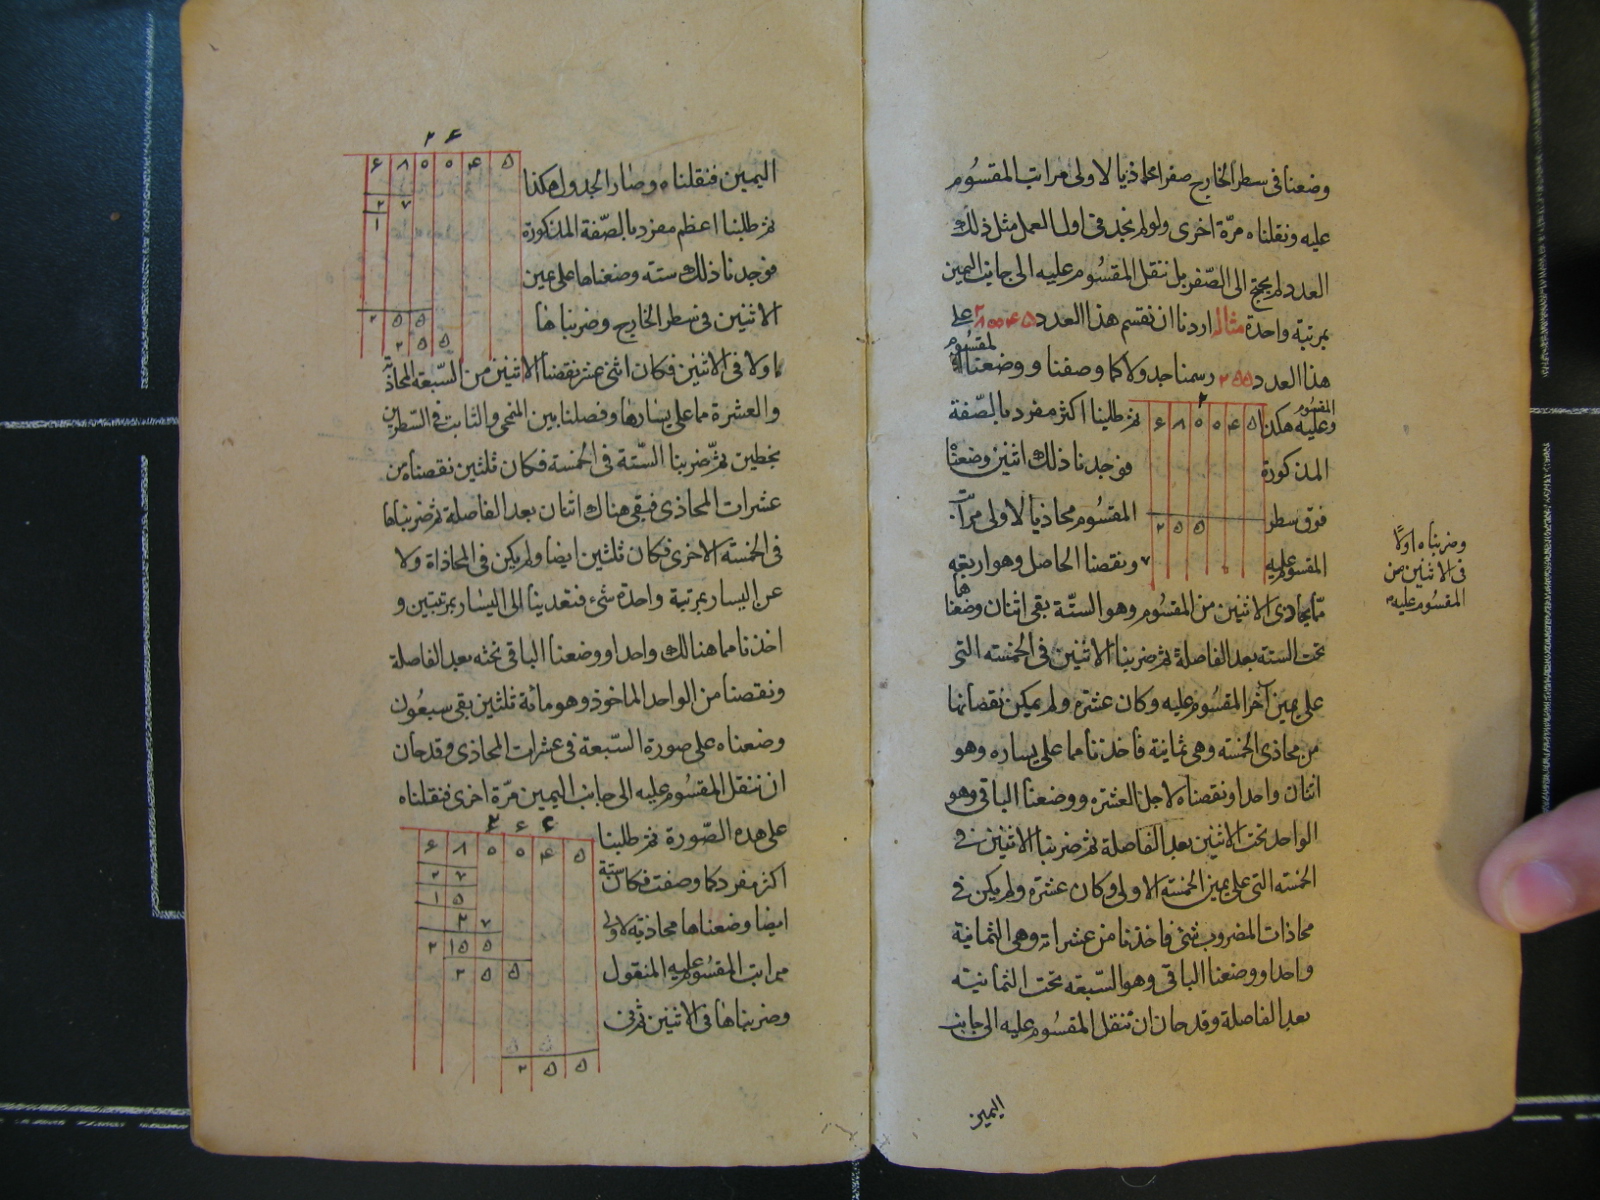 وضعنا في سطر الخارج صفرا محاذيا لاولى مراتب المقسوم
عليه ونقلناه مرّة اخرى ولو لم نجد في اول العمل مثل ذلك
العدد لم يحتج الى الصّفر بل ننقل المقسوم عليه الى جانب اليمين
بمرتبة واحدة مثاله اردنا ان نقسم هذا العدد ۶۸۵۵۴۵ على
هذا العدد ۲۵۵ رسمنا جدولا كما وصفنا ووضعنا المقسوم
والمقسوم عليه هكذا
۲
۶ ۸ ۵ ۵ ۴ ۵
۲ ۵ ۵
ثم طلبنا اكثر مفرد بالصّفة
المذكورة فوجدنا ذلك اثنين وضعناه
فوق سطر المقسوم محاذيا لاولى مراتب
المقسوم عليه ونقصنا الحاصل وهو اربعة
وضربناه اولا
في الاثنين من
المقسوم عليه
مما يحاذى الاثنين من المقسوم وهو الستّة بقى اثنان وضعناها
تحت الستة بعد الفاصلة ثم ضربنا الاثنين في الخمسه التى
على يمين آخر المقسوم عليه وكان عشرة ولم يمكن نقصانها
من محاذى الخمسه وهى ثمانية فاخذنا مما على يساره وهو
اثنان واحدا ونقصناه لاجل العشره ووضعنا الباقى وهو
الواحد تحت الاثنين بعد الفاصلة ثم ضربنا الاثنين في
الخمسه التى على يمين الخمسه الاولى وكان عشرة ولم يكن في
محاذات المضروب شئ فاخذنا من عشراته وهى الثمانية
واحدا ووضعنا الباقى وهو السّبعه تحت الثمانية
بعد الفاصلة وقد حان ان ننقل المقسوم عليه الى جانب
اليمين
اليمين فنقلناه وصار الجدول هكذا
۲ ۶
۶ ۸ ۵ ۵ ۴ ۵
۲ ۷
۱
۲ ۵ ۵
۲ ۵ ۵
ثم طلبنا اعظم مفرد بالصّفة المذكورة
فوجدنا ذلك ستة وضعناها على يمين
الاثنين في سطر الخارج وضربناها
اولا في الاثنين فكان اثنى عشر نقصنا الاثنين من السّبعه المحاذية
والعشرة مما على يسارها وفصلنا بين الممحى والثابت في السّطرين
بخطين ثم ضربنا الستّة في الخمسة فكان ثلثين نقصناه من
عشرات المحاذى فبقى هناك اثنان بعد الفاصلة ثم ضربناها
في الخمسة الاخرى فكان ثلثين ايضا ولم يكن في المحاذاة ولا
عن اليسار بمرتبة واحدة شئ فتعدينا الى اليسار بمرتبتين و
اخذنا مما هنالك واحدا ووضعنا الباقى تحته بعد الفاصلة
ونقصنا من الواحد الماخوذ وهو مائة ثلثين بقى سبعون
وضعناه على صورة السّبعة في عشرات المحاذى وقد حان
ان ننقل المقسوم عليه الى جانب اليمين مرّة اخرى فنقلناه
على هذه الصّورة ثم طلبنا
۲ ۶ ۶
۶ ۸ ۵ ۵ ۴ ۵
۲ ۷
۱ ۵
۲ ۷
۲ ۱۵ ۵
۲ ۵ ۵
۲ ۵ ۵
اكثر مفرد كما وصفت فكان ستة
ايضا وضعناها محاذية لاولى
مراتب المقسوم عليه المنقول
وضربناها في الاثنين ثم في